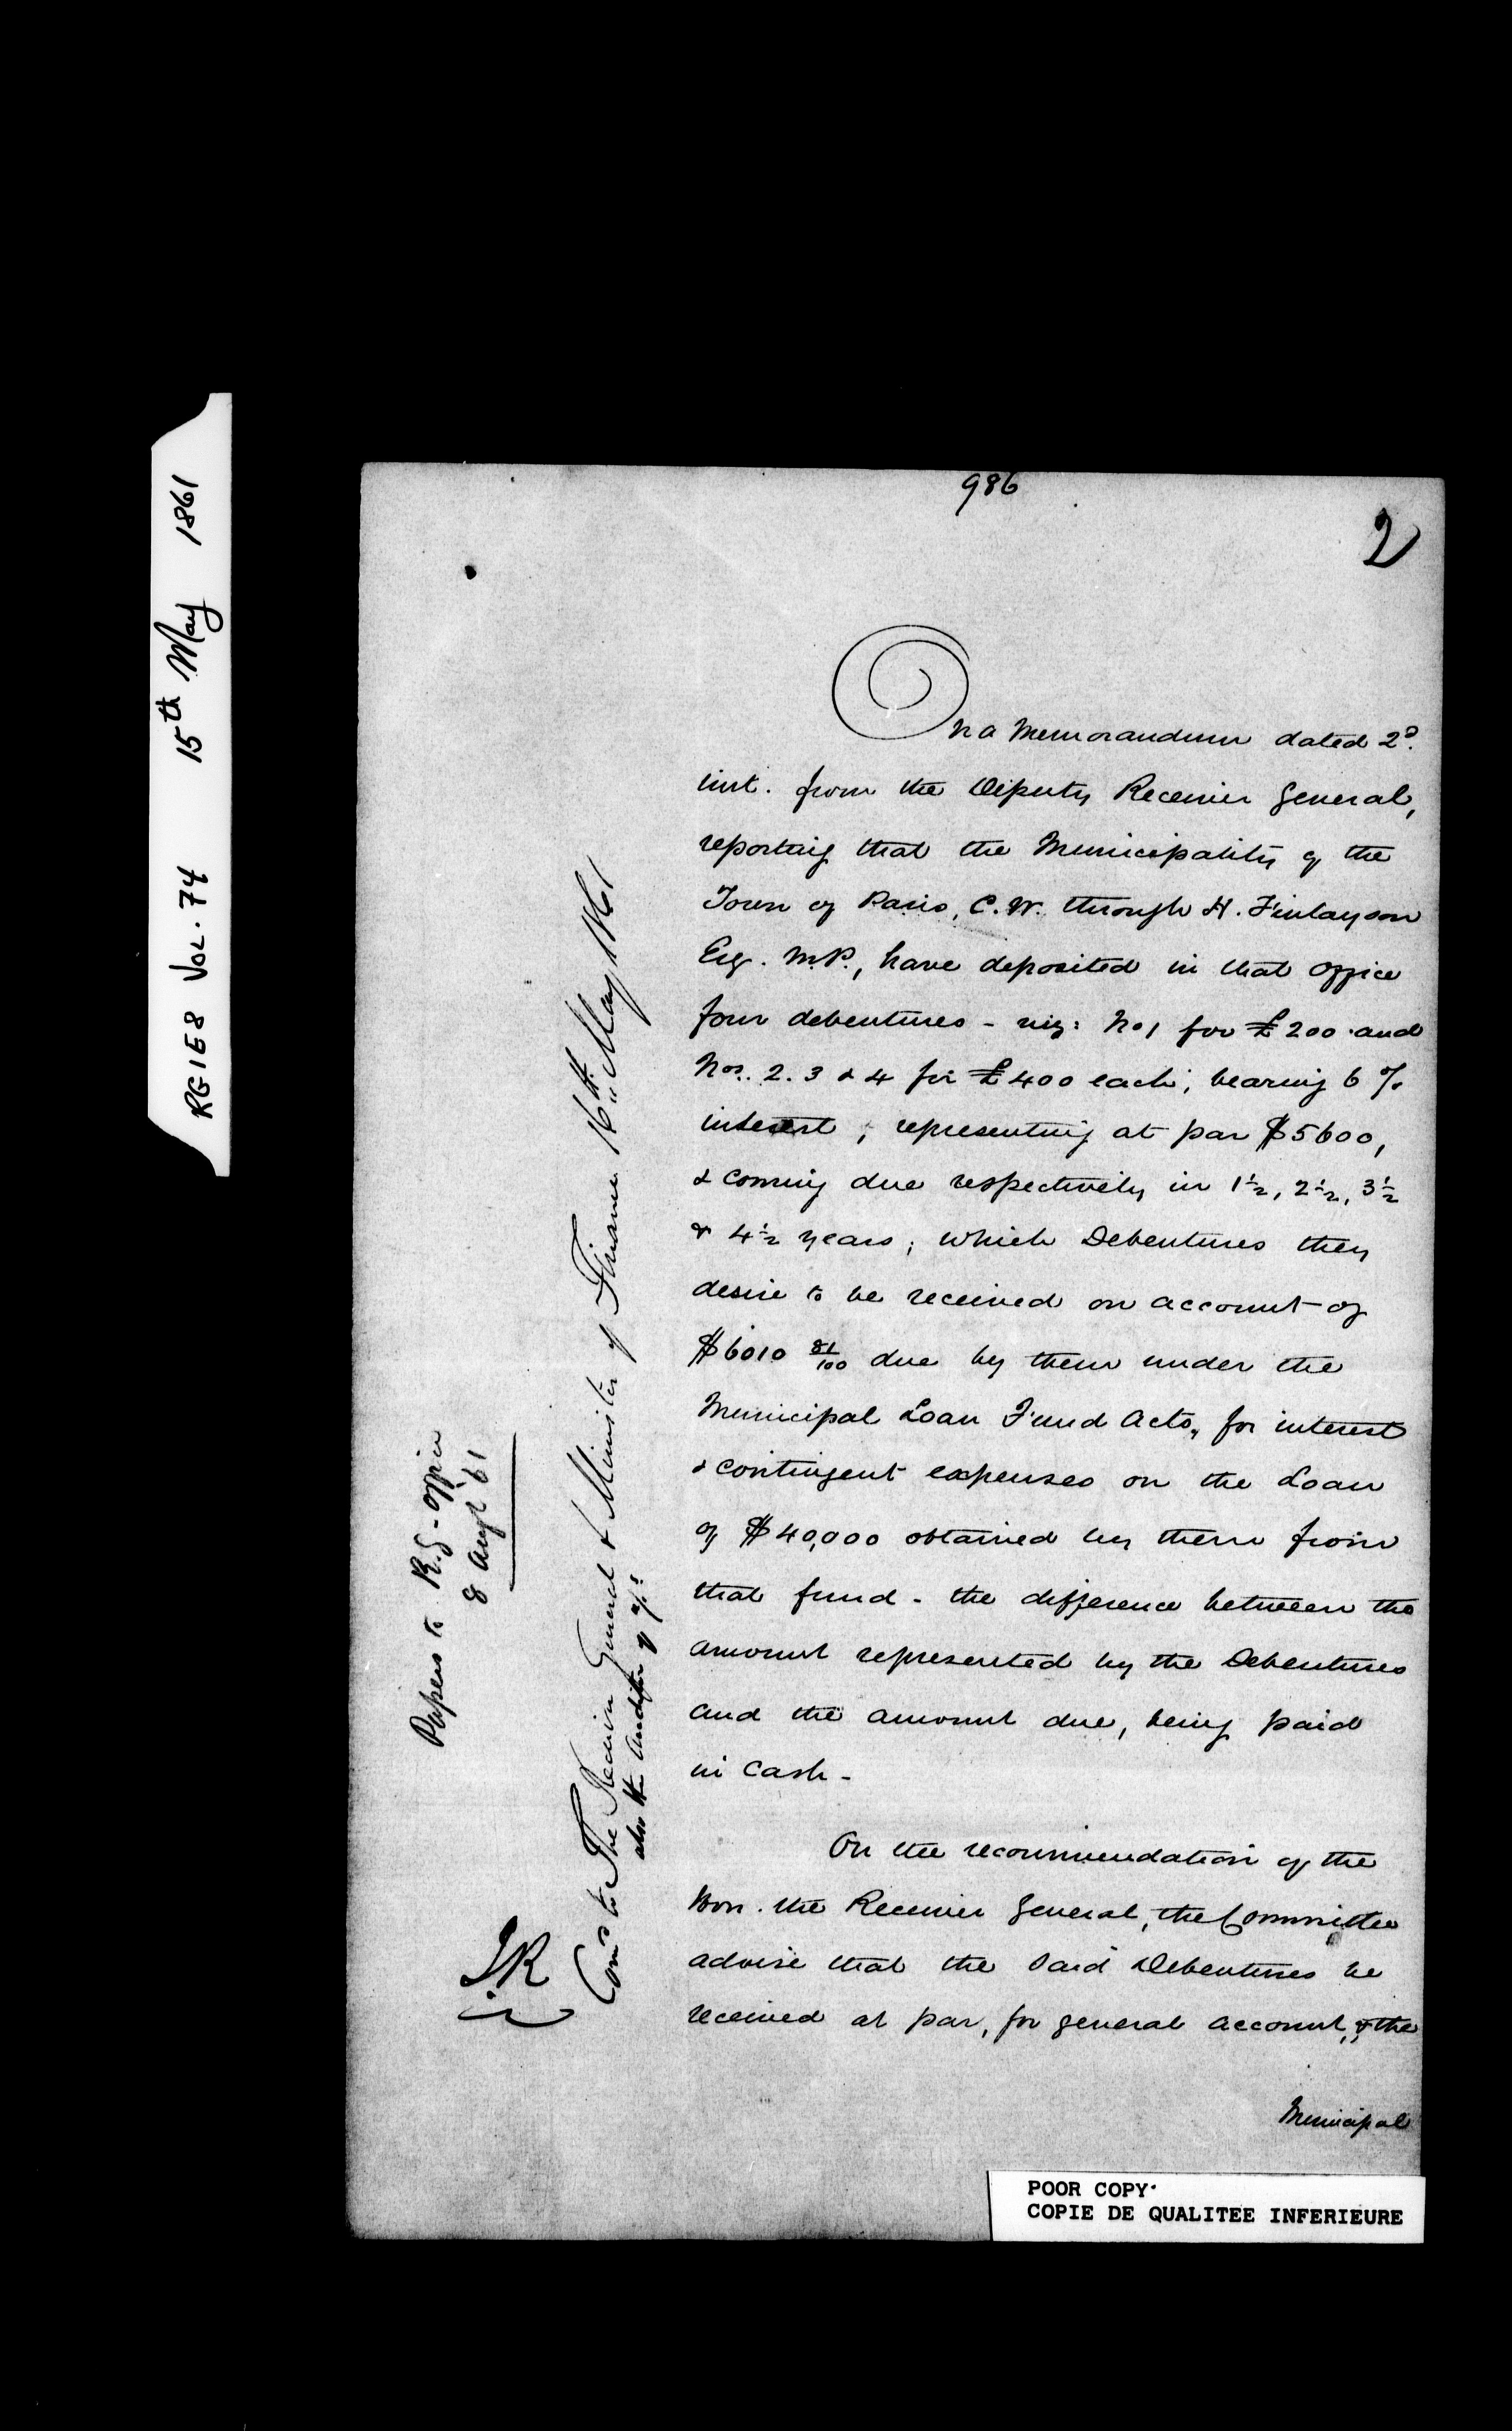 986
2
On a Memorandum dated 2d.
inst. from the Deputy Receiver General,
reporting that the Municipality of the
Town of Paris, C.W. through H. Finlayson
Esq. M.P., have deposited in that office
four debentures - viz: No 1 for £200 and
Nos. 2. 3 & 4 for £400 each, bearing 6 %
interest, representing at par $5600,
& coming due respectively in 1½, 2½, 3½
& 4½ years; which Debentures they
desire to be received on account of
$6010 81/100 due by them under the
Municipal Loan Fund Acts, for interest
& contingent expenses on the Loan
of $40,000 obtained by them from
that fund - the difference between the
amount represented by the Debentures
and the amount due, being paid
in Cash -
On the recommendation of the
Hon. the Receiver General, the Committee
advise that the said Debentures be
received at par, for general account, & the
Municipal
Comd to The Receiver General & Minister of Finance 16th May 1861
also the Auditor of a/cs
Papers to R.G - office
8 Augt 61
J.R
RG1E8 VOL. 74 15th May 1861
POOR COPY
COPIE DE QUALITEE INFERIEURE